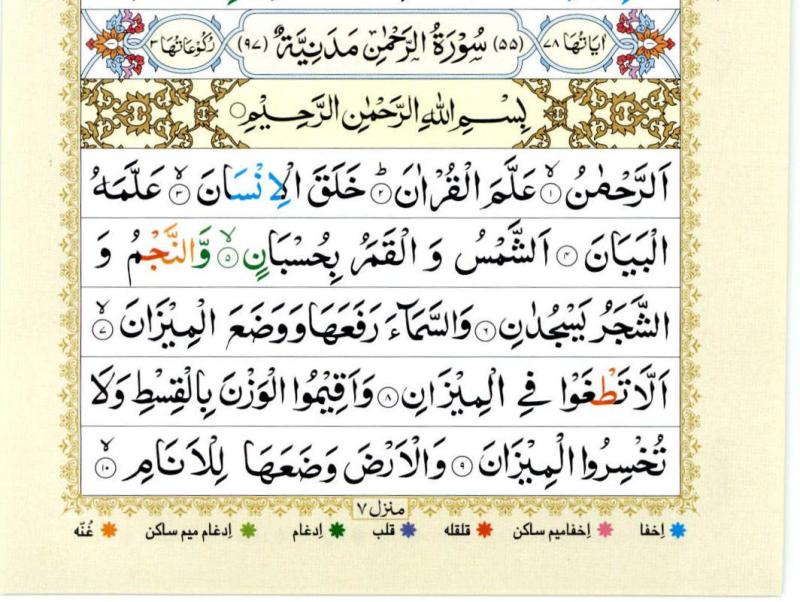 اٰيَاتُهَا ٧٨ (٥٥) سُوْرَةُ الرَّحْمٰنِ مَدَنِيَّةٌ (٩٧) رُكُوْعَاتُهَا ٣
بِسْمِ اللهِ الرَّحْمٰنِ الرَّحِيْمِ ۝
اَلرَّحْمٰنُ ۝١ۙ عَلَّمَ الْقُرْاٰنَ ۝٢ؕ خَلَقَ الْاِنْسَانَ ۝٣ۙ عَلَّمَهُ
الْبَيَانَ ۝٤ اَلشَّمْسُ وَ الْقَمَرُ بِحُسْبَانٍ ۝٥ۙ وَّالنَّجْمُ وَ
الشَّجَرُ يَسْجُدٰنِ ۝٦ وَالسَّمَآءَ رَفَعَهَا وَوَضَعَ الْمِيْزَانَ ۝٧ۙ
اَلَّا تَطْغَوْا فِى الْمِيْزَانِ ۝٨ وَاَقِيْمُوا الْوَزْنَ بِالْقِسْطِ وَلَا
تُخْسِرُوا الْمِيْزَانَ ۝٩ وَالْاَرْضَ وَضَعَهَا لِلْاَنَامِ ۝١٠ۙ
منزل ٧
اِخفا اِخفامیم ساکن قلقله قلب اِدغام اِدغام میم ساکن غُنّه